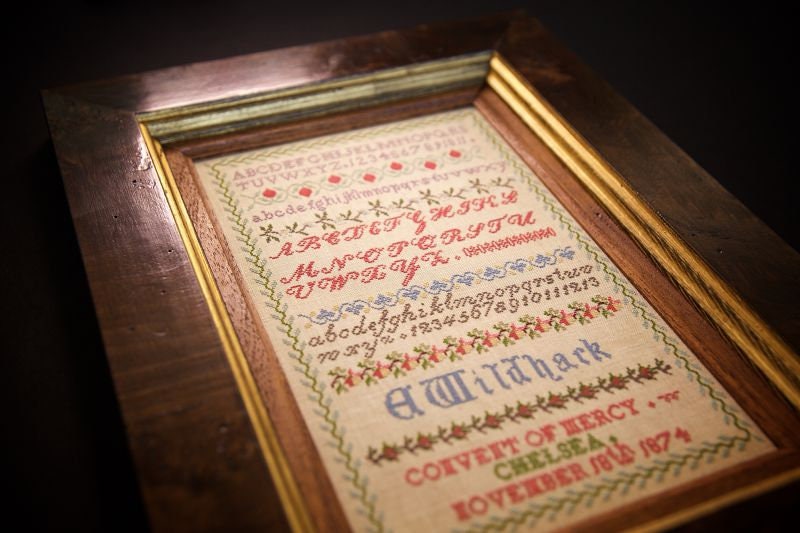 ABCDEFGHIJKLMNOPQRS
TUVWXYZ.1234567891011.
abcdefghijklmnopqrstuvwxyz
ABCDEFGHIKL
MNOPQRSTU
VWXYZ.
abcdefghijklmnopqrstuv
wxyz.12345678910111213
AWildhack
CONVENT OF MERCY.
CHELSEA.
NOVEMBER 18th 1874